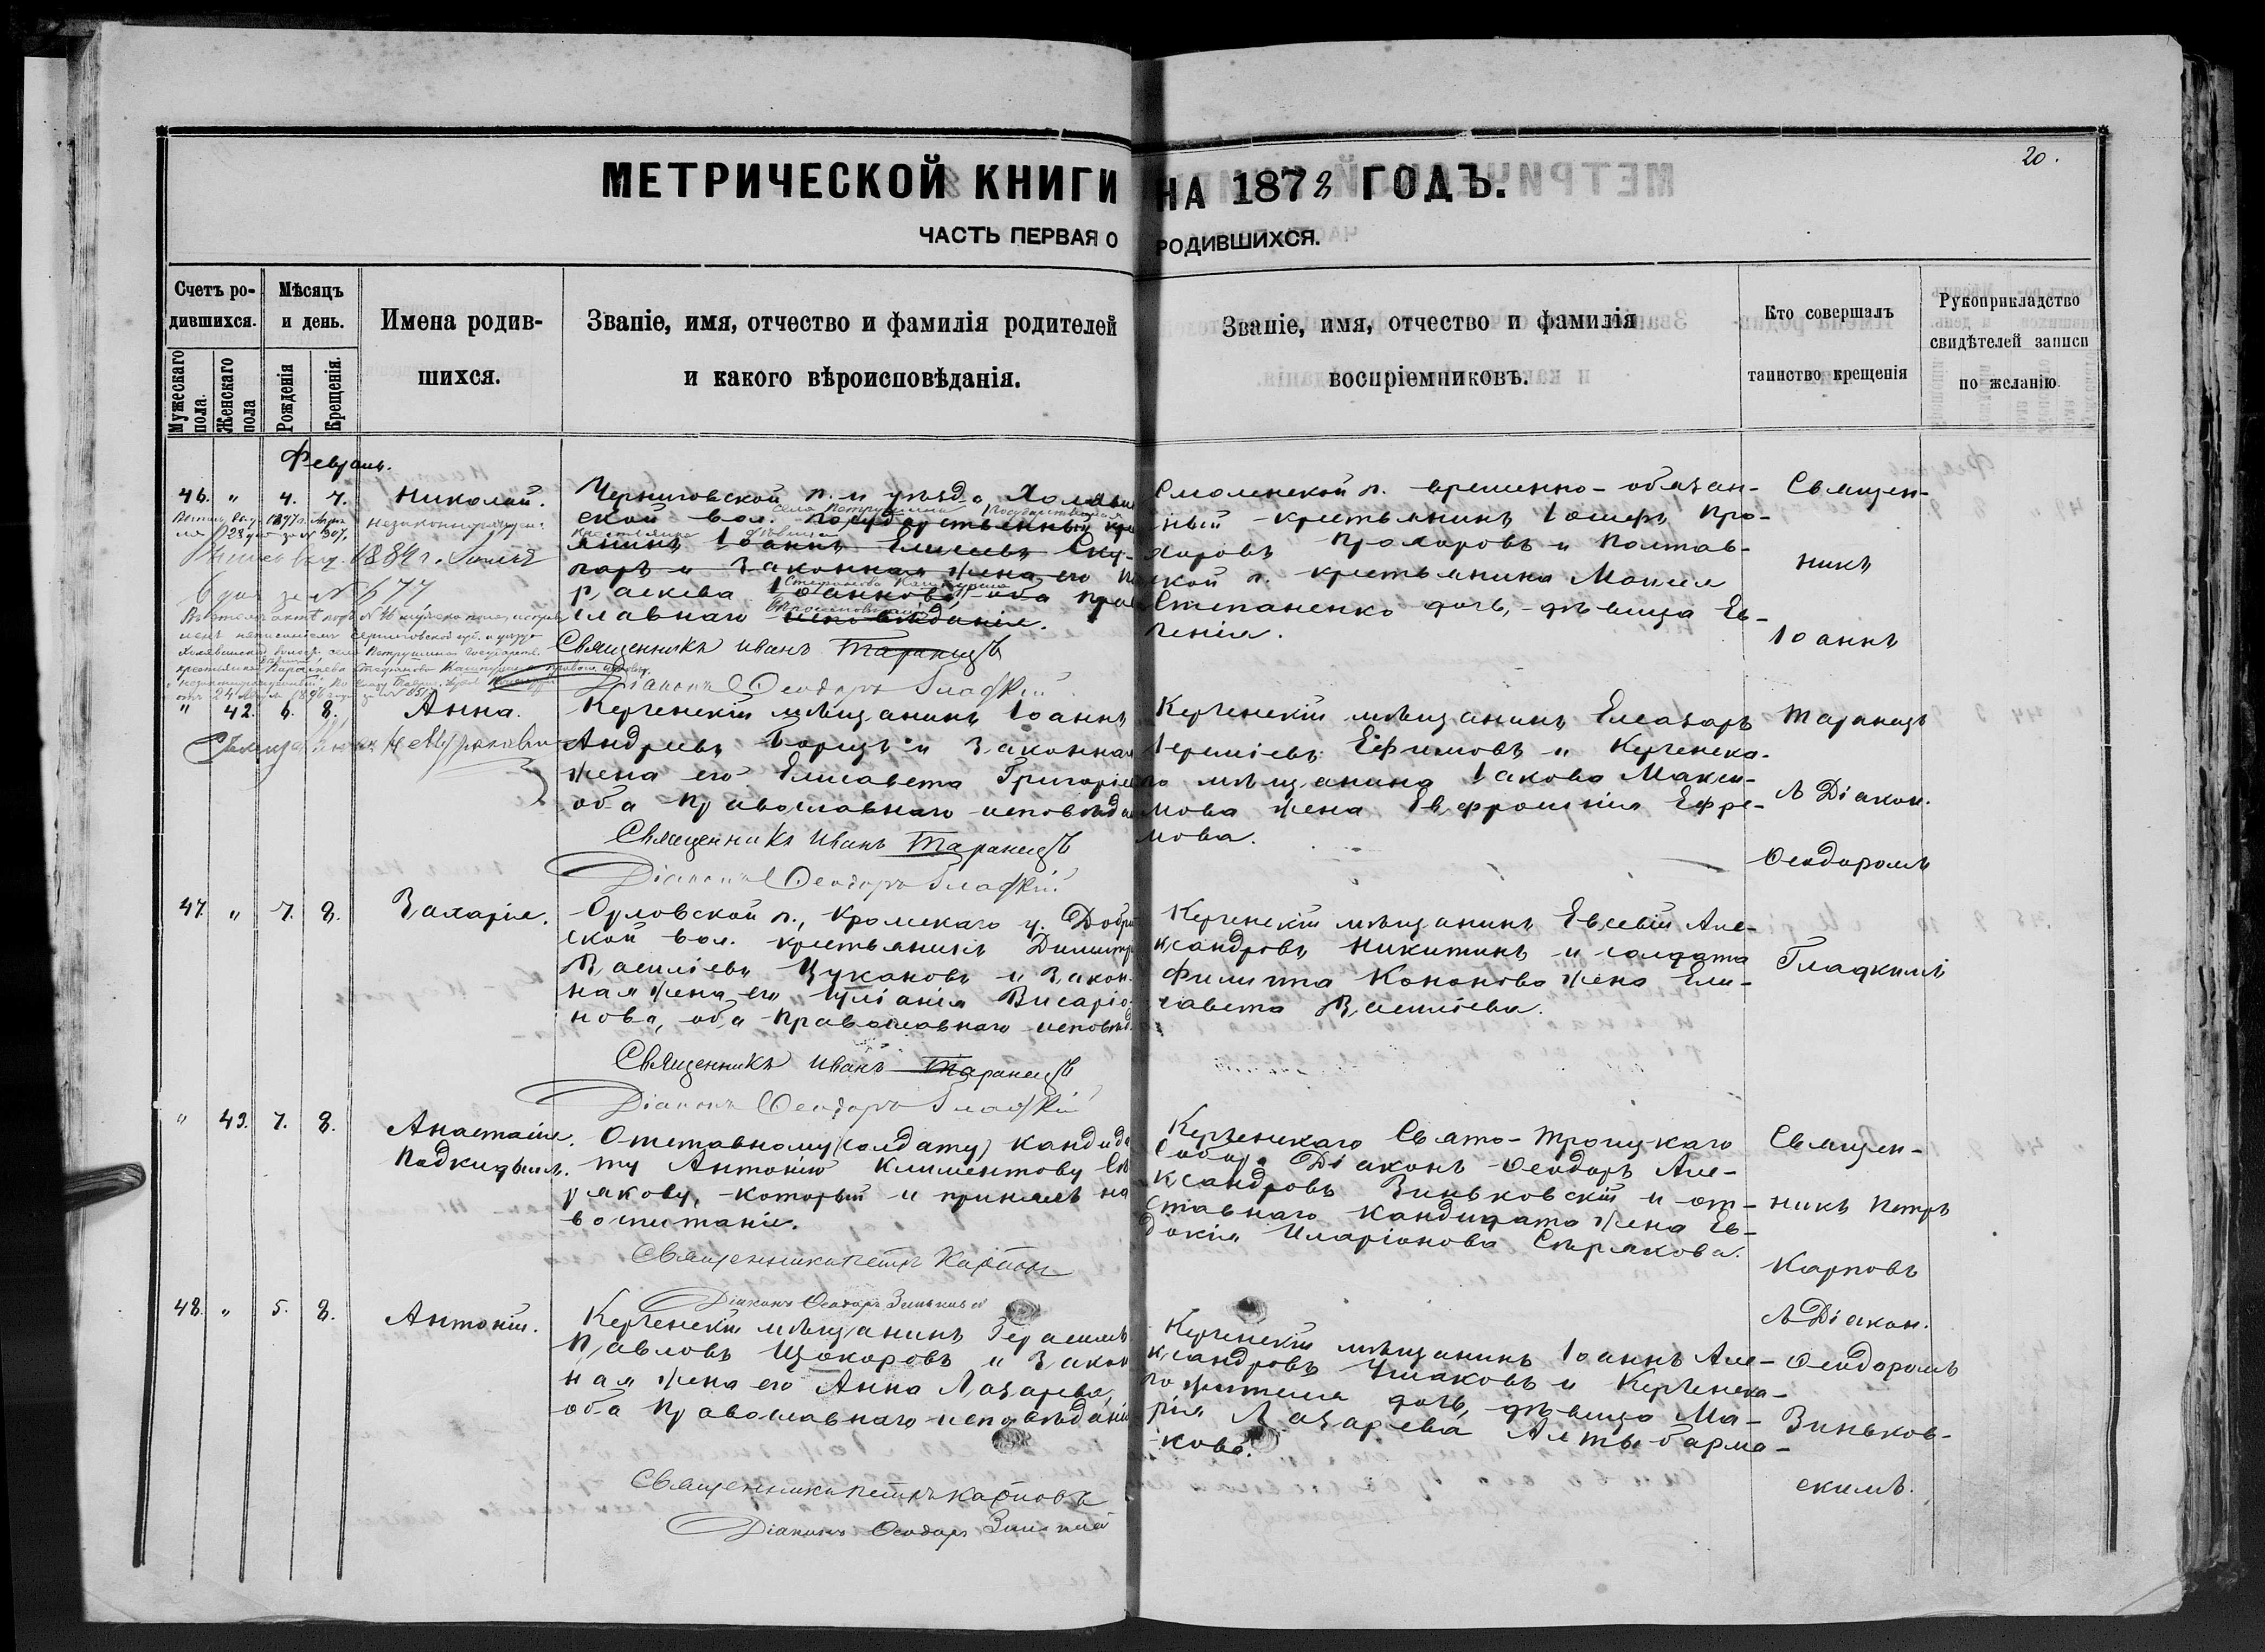 20.
МЕТРИЧЕСКОЙ КНИГИ НА 1873 ГОДЪ.
ЧАСТЬ ПЕРВАЯ О РОДИВШИХСЯ.
Счетъ ро-
дившихся.
Мужескаго
пола.
Женскаго
пола
Мѣсяцъ
и день.
Рожденія
Крещенія.
Имена родив-
шихся.
Званіе, имя, отчество и фамилія родителей
и какого вѣроисповѣданія.
Званіе, имя, отчество и фамилія
воспріемниковъ.
Кто совершалъ
таинство крещенія
Рукоприкладство
свидѣтелей записи
по желанію
Февраль.
46. " 4. 7.
Николай.
незаконнорожден.
1884 г.
за № 677
Черниговской г. и уѣзда, Холявин
села Петрушина Государственная
ской вол. государственный кре
крестьянка дѣвица
янинъ Іоаннъ Елисеевъ Ску-
ларь и законная жена его Па
Стефанова
раскева Іоаннова, оба право
славнаго исповѣданія.
Вѣроисповѣданія
Священникъ Иванъ Таранецъ
Діаконъ Ѳеодоръ Гладкій
Смоленской г. временно-обязан-
ный крестьянинъ Іосифъ Про-
хоровъ Прохоровъ и Полтав-
ской г. крестьянина Моисея
Степаненко дочь, дѣвица Ев-
генія.
Священ-
никъ
Іоаннъ
Таранецъ
съ Діакон.
Ѳеодоромъ
Гладкимъ
" 42. 6. 8.
Анна.
Керченскій мѣщанинъ Іоаннъ
Андреевъ Борщъ и законная
жена его Елисавета Григоріев
оба православнаго исповѣдан
Священникъ Иванъ Таранецъ
Діаконъ Ѳеодоръ Гладкій
Керченскій мѣщанинъ Елеазаръ
Іереміевъ Ефимовъ и Керченска-
го мѣщанина Іакова Макси-
мова жена Евфросинія Ефре-
мова.
47. " 7. 8.
Захарія.
Орловской г., Кромскаго у. Добрын
ской вол. крестьянинъ Димитрі
Василіевъ Цукановъ и закон-
ная жена его Іуліанія Висаріо-
нова, оба православнаго исповѣд.
Священникъ Иванъ Таранецъ
Діаконъ Ѳеодоръ Гладкій
Керченскій мѣщанинъ Евсевій Але-
ксандровъ Никитинъ и солдата
Филиппа Кононова жена Ели-
савета Василіева.
" 43. 7. 8.
Анастасія.
Подкидышъ.
Отставному (солдату) кандида
ту Антонію Климентову Сѣ
рякову, который и принялъ на
воспитаніе.
Священникъ Петръ Карповъ
Діаконъ Ѳеодоръ Зиньковскій
Керченскаго Свято-Троицкаго
Собора Діаконъ Ѳеодоръ Але-
ксандровъ Зиньковскій и от-
ставнаго кандидата жена Ев-
докія Иларіонова Сѣрякова.
Священ-
никъ Петръ
Карповъ
съ Діакон.
Ѳеодоромъ
Зиньков-
скимъ.
48. " 5. 8.
Антоній.
Керченскій мѣщанинъ Герасимъ
Павловъ Щокоровъ и закон
ная жена его Анна Лазарева,
оба православнаго исповѣданія
Священникъ Петръ Карповъ
Діаконъ Ѳеодоръ Зиньковскій
Керченскій мѣщанинъ Іоаннъ Але-
ксандровъ Чмаковъ и Керченска-
го жителя дочь, дѣвица Ма-
рія Лазарева Алтыбарма-
кова.